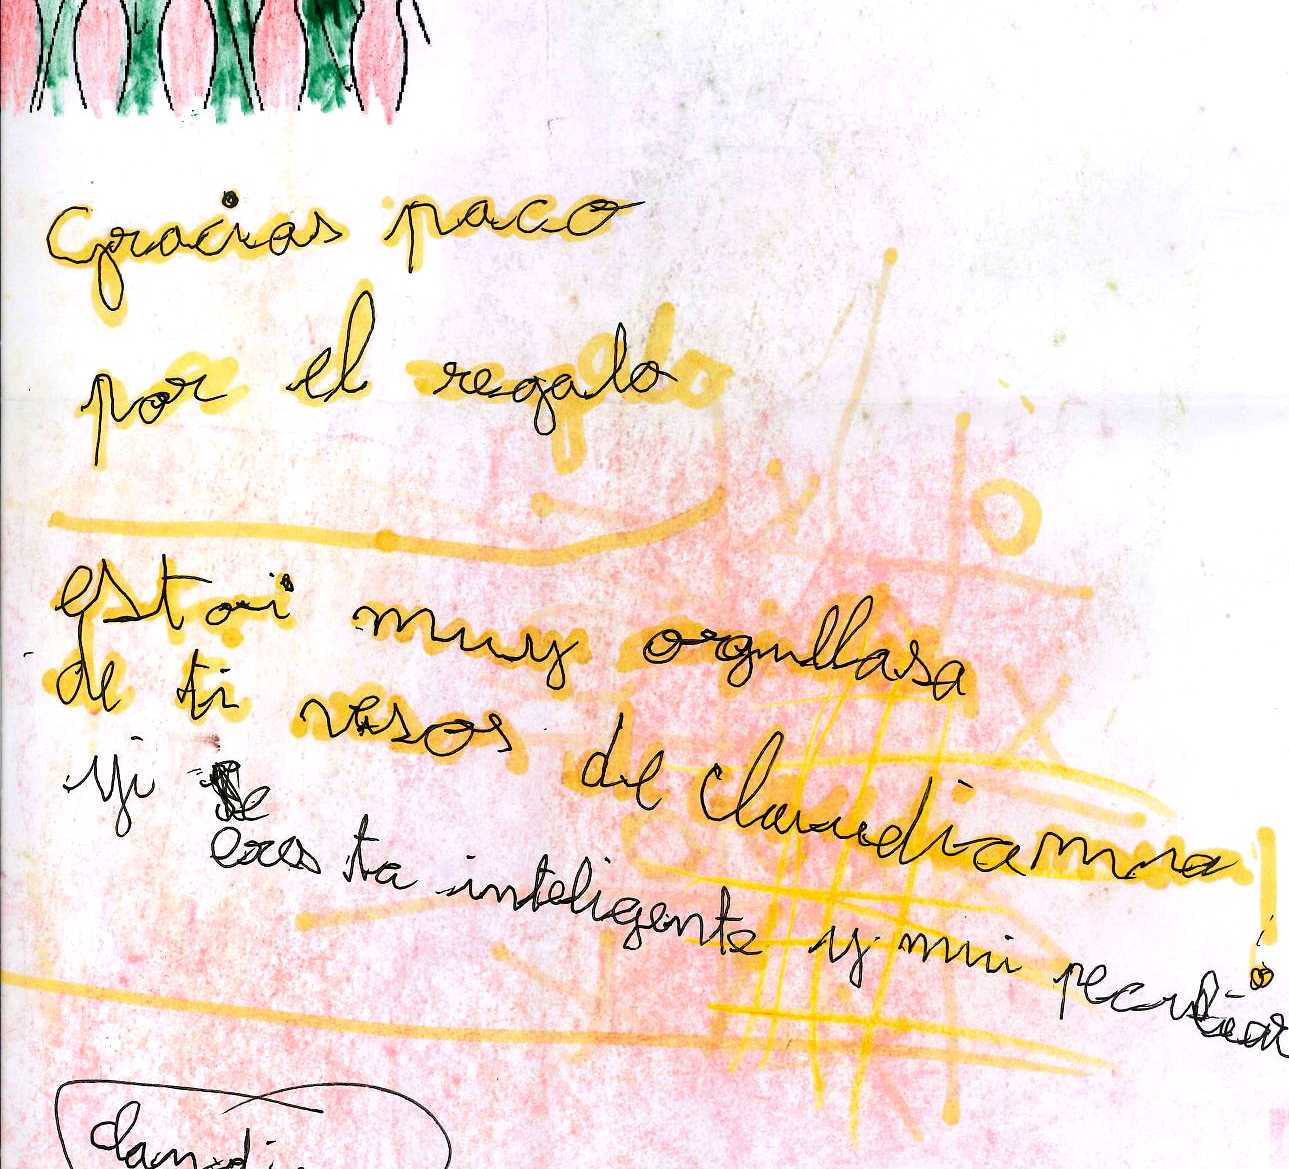 Gracias paco
por el regalo
estoi muy orgullasa
de ti vesos de claudia mma!
yi se
eres ta inteligente y mui peculiar
claudia